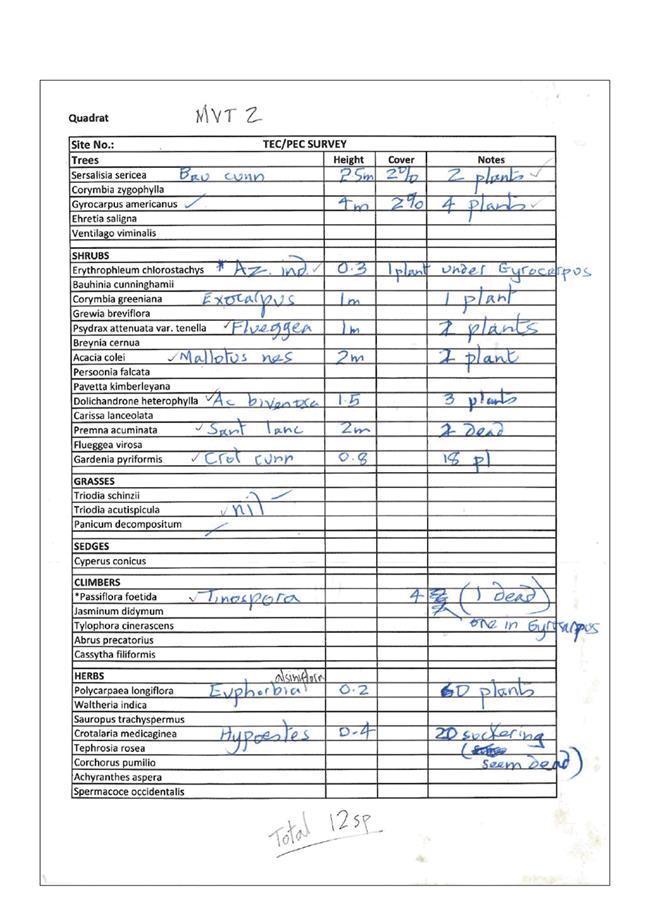 Quadrat MVT 2
Site No.: TEC/PEC SURVEY
Trees Height Cover Notes
Sersalisia sericea Bru cunn 25m 2% 2 plants ✓
Corymbia zygophylla
Gyrocarpus americanus ✓ 4m 2% 4 plants ✓
Ehretia saligna
Ventilago viminalis
SHRUBS
Erythrophleum chlorostachys * Az. ind. ✓ 0.3 1 plant under Gyrocarpus
Bauhinia cunninghamii
Corymbia greeniana Exocarpus 1m 1 plant
Grewia breviflora
Psydrax attenuata var. tenella ✓ Flueggea 1m plants
Breynia cernua
Acacia colei ✓ Mallotus nes 2m plant
Persoonia falcata
Pavetta kimberleyana
Dolichandrone heterophylla ✓ Ac biventxa 1.5 3 plants
Carissa lanceolata
Premna acuminata ✓ Sant lanc 2m Dead
Flueggea virosa
Gardenia pyriformis ✓ Crot cunn 0.8 18 pl
GRASSES
Triodia schinzii
Triodia acutispicula ✓ nil
Panicum decompositum
SEDGES
Cyperus conicus
CLIMBERS
*Passiflora foetida ✓ Tinospora 4 (1 dead)
Jasminum didymum
Tylophora cinerascens one in Gyrocarpus
Abrus precatorius
Cassytha filiformis
HERBS alsiniflora
Polycarpaea longiflora Euphorbia 0.2 60 plants
Waltheria indica
Sauropus trachyspermus
Crotalaria medicaginea Hypoestes 0.4 20 suckering
Tephrosia rosea (
Corchorus pumilio seem dead)
Achyranthes aspera
Spermacoce occidentalis
Total 12sp